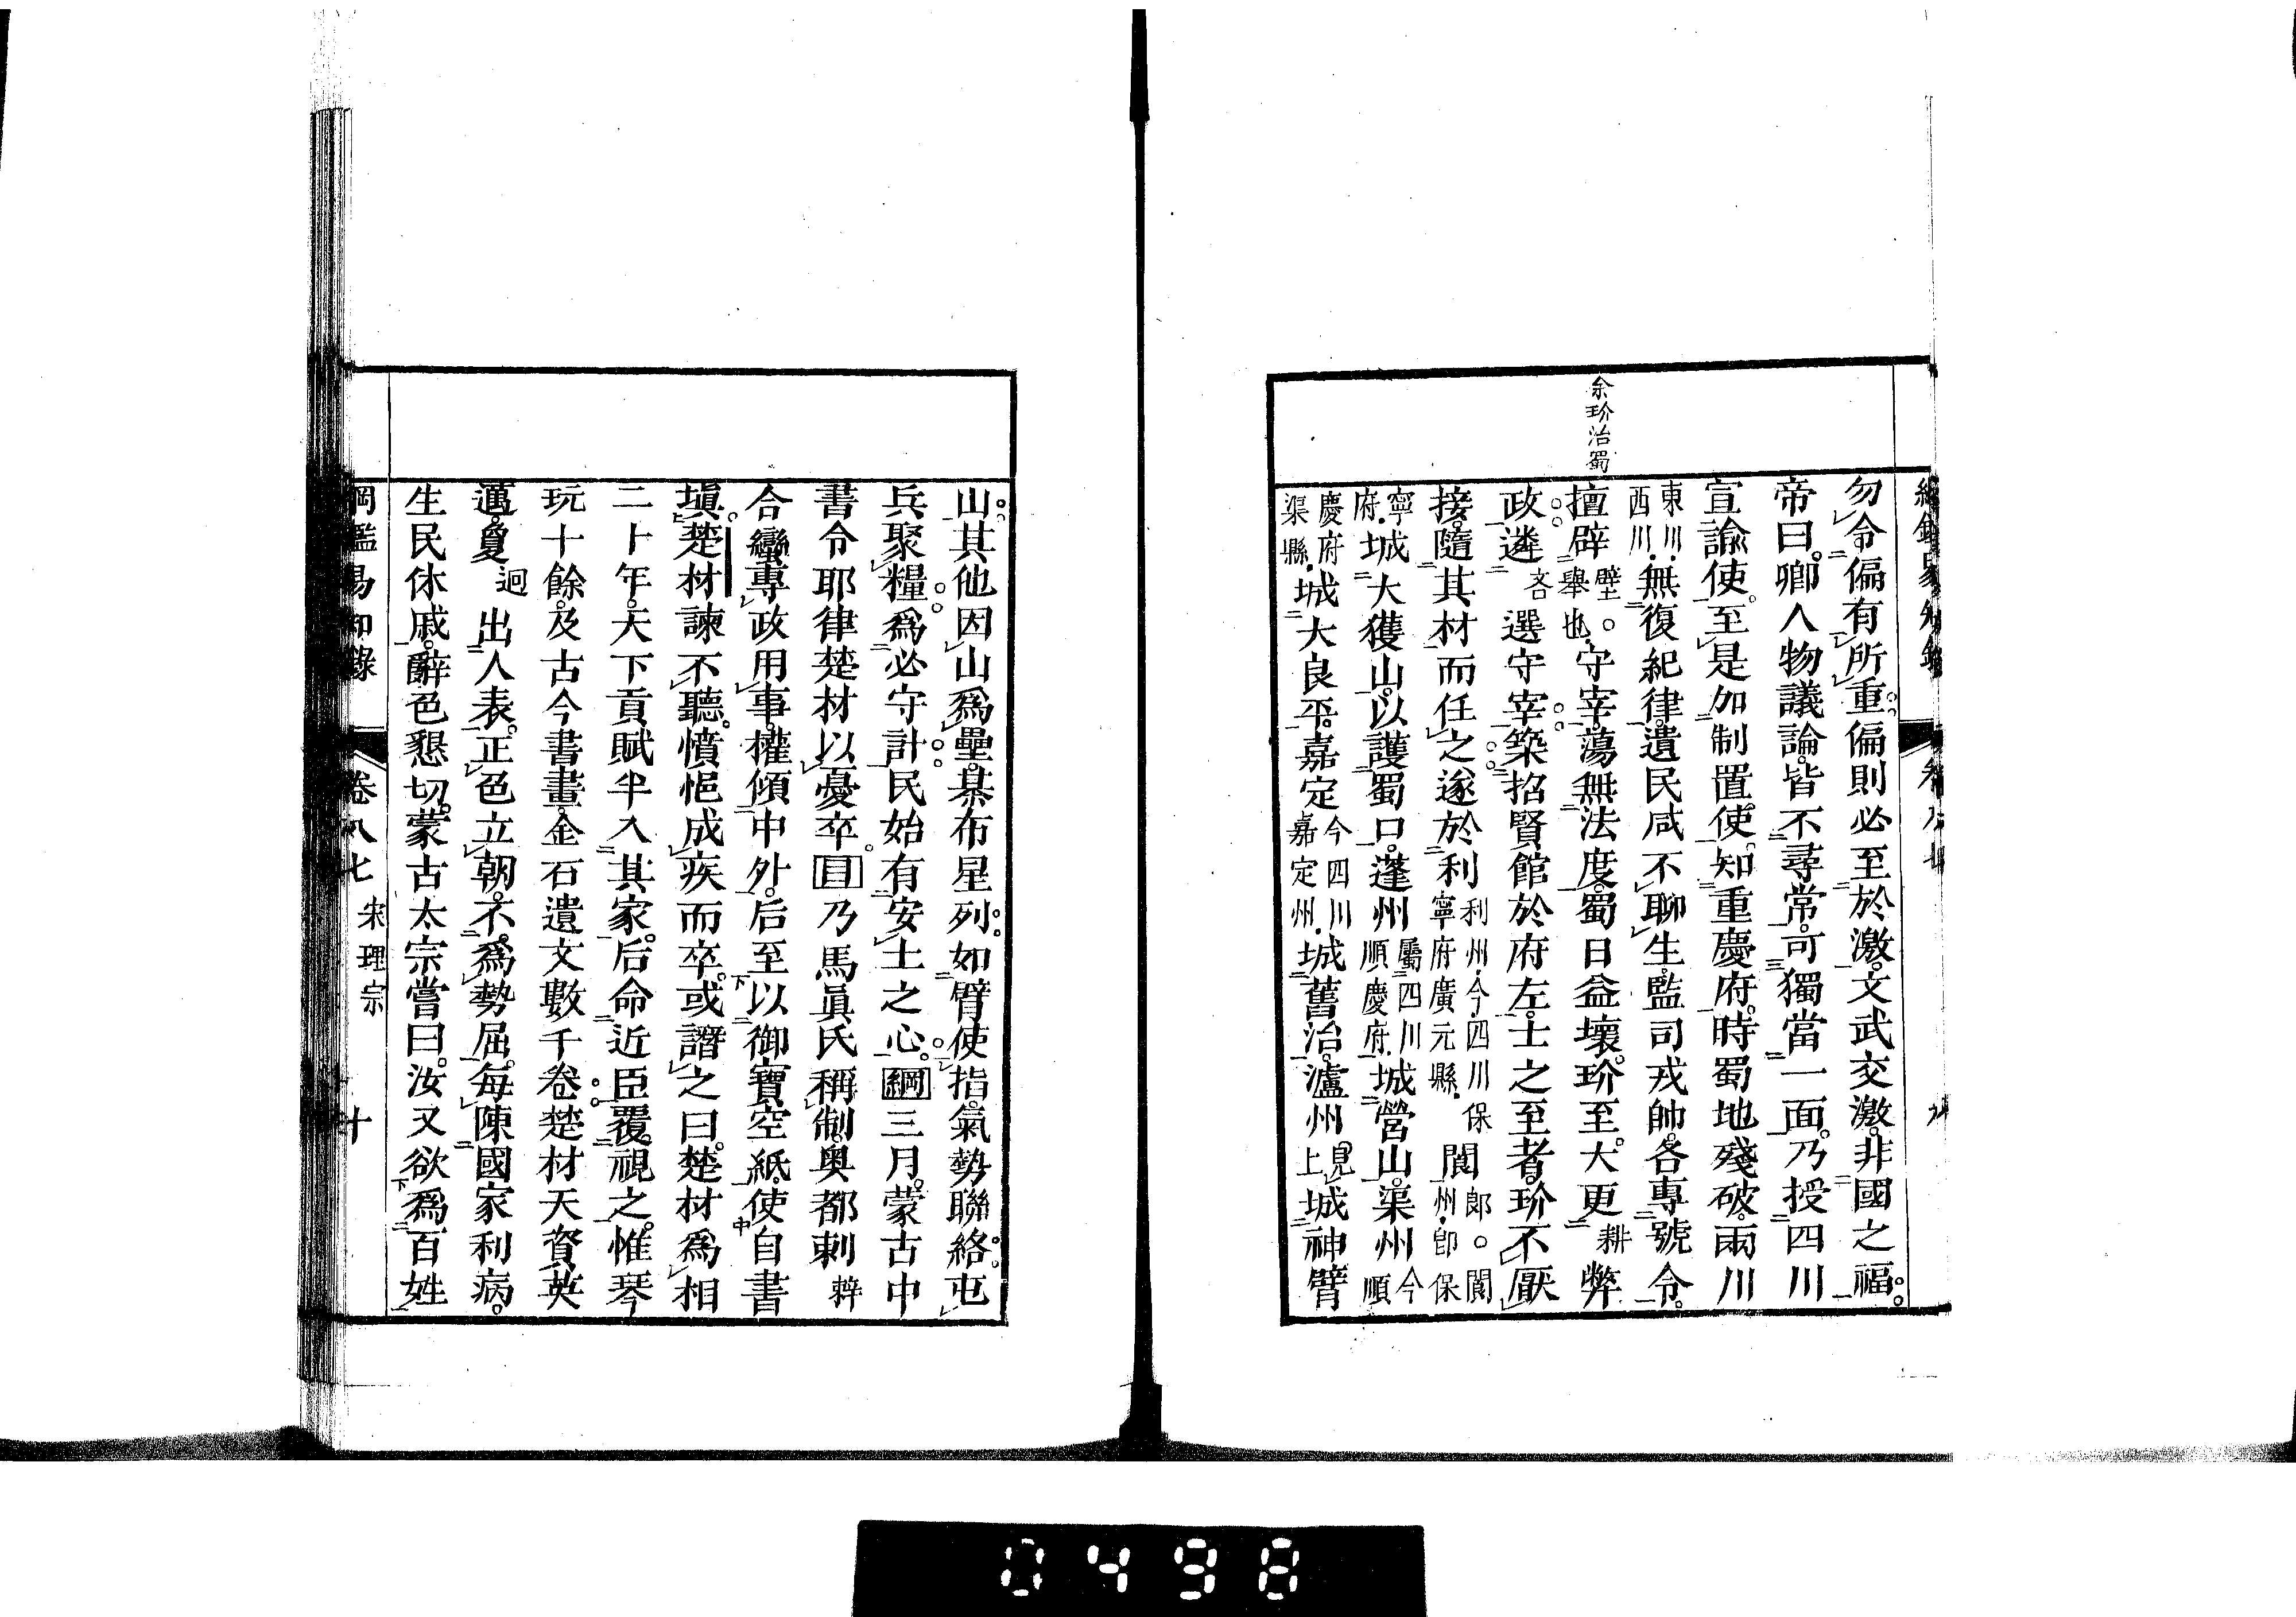 余玠治蜀
勿令偏有所重偏則必至於激。文武交激。非國之福。
帝曰。卿人物議論。皆不尋常。可獨當一面。乃授四川
宣諭使。至是加制置使。知重慶府。時蜀地殘破。兩川
東川西川。無復紀律。遺民咸不聊生。監司戎帥。各專號令。
擅辟璧。舉也。守宰。蕩無法度。蜀日益壞。玠至。大更耕弊
政。遴吝選守宰。築招賢館於府左。士之至者。玠不厭
接。隨其材而任之。遂於利利州。今四川保寧府廣元縣。閬郎。閬州。卽保
寧府。城大獲山。以護蜀口。蓬州屬四川順慶府。城營山。渠州今順
慶府渠縣。城大良平。嘉定今四川嘉定州。城舊治。瀘州見上城神臂
山。其他因山爲壘。棊布星列。如臂使指。氣勢聯絡。屯
兵聚糧。爲必守計。民始有安土之心。綱三月。蒙古中
書令耶律楚材以憂卒。目乃馬眞氏稱制。奧都剌辢
合蠻專政用事。權傾中外。后至以御寶空紙。使自書
塡。楚材諫不聽。憤悒成疾而卒。或譖之曰。楚材爲相
二十年。天下貢賦半入其家。后命近臣覆視之。惟琴
玩十餘。及古今書畫。金石遺文數千卷。楚材天資英
邁。夐迥出人表。正色立朝。不爲勢屈。每陳國家利病。
生民休戚。辭色懇切。蒙古太宗嘗曰。汝又欲爲百姓
綱鑑易知錄 卷八七 宋理宗 十
0498